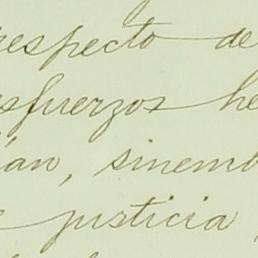 respecto de
esfuerzos he
ían, sinemb
justicia